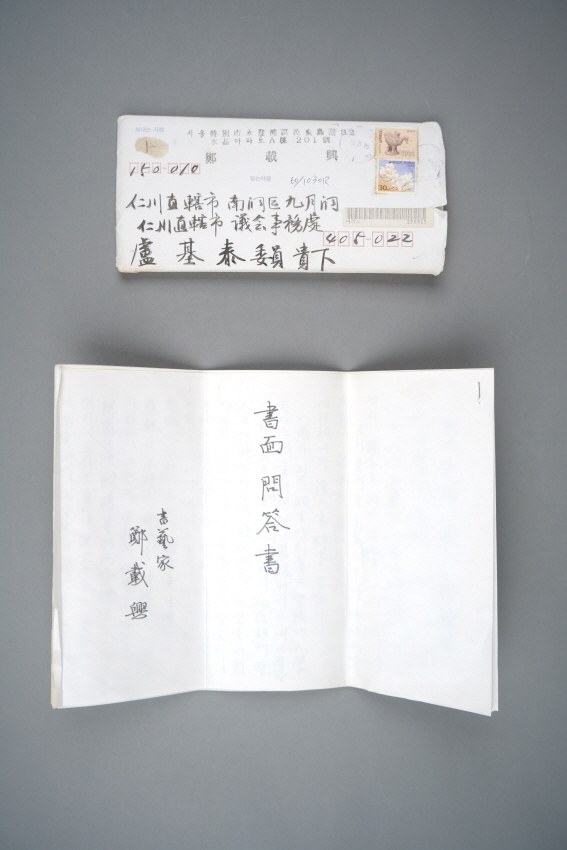 鄭載興
150-010
仁川直轄市 南洞区 九月洞
仁川直轄市 議会事務處
405-022
盧基泰委員 貴下
30
書面問答書
書藝家
鄭載興